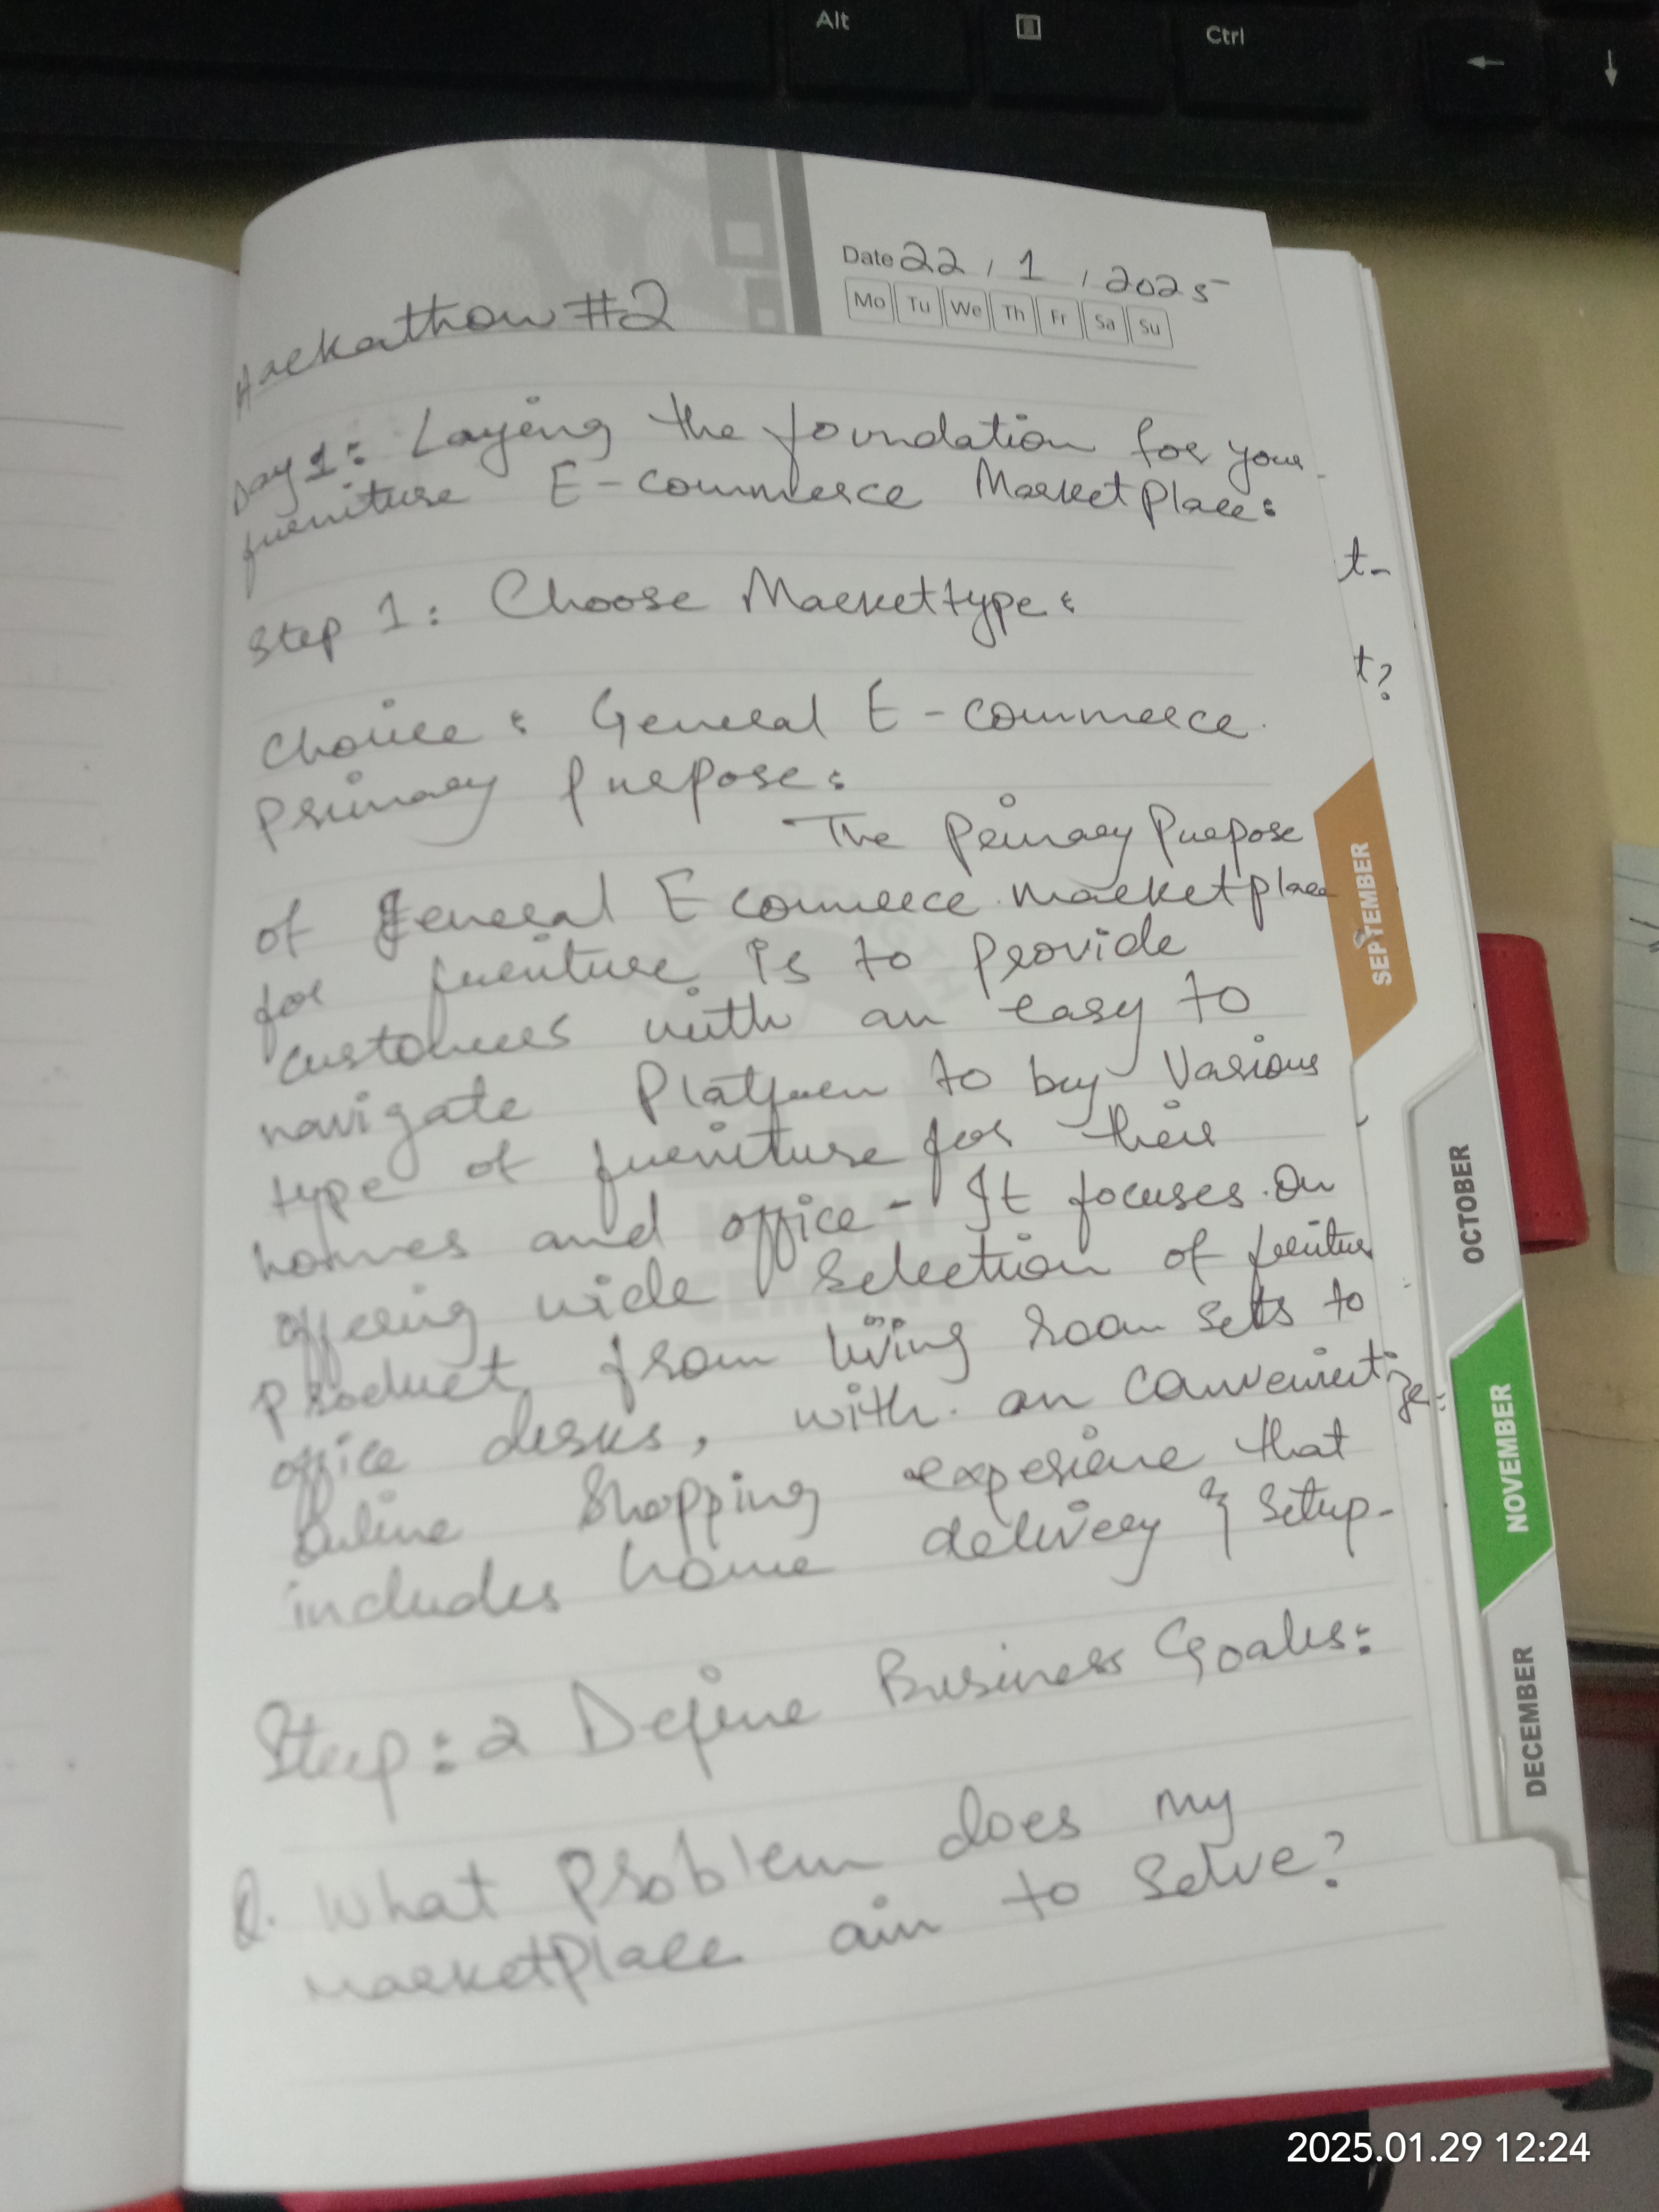 Alt
Ctrl
Date 22 / 1 / 2025
Mo Tu We Th Fr Sa Su
Hackathon #2
Day 1: Laying the foundation for your
furniture E-commerce MarketPlace:
Step 1: Choose Markettype:
Choice: General E-commerce.
Primary Purpose:
The Primary Purpose
of general E commerce marketplace
for furniture is to Provide
customers with an easy to
navigate Platform to buy Various
type of furniture for their
homes and office - It focuses on
offering wide selection of
Product from living room sets to
office desks, with an convenient
Online Shopping experience that
includes home delivery & Setup-
Step: 2 Define Business Goals:
Q. What Problem does my
MarketPlace aim to Solve?
t-
t?
SEPTEMBER
OCTOBER
NOVEMBER
DECEMBER
2025.01.29 12:24